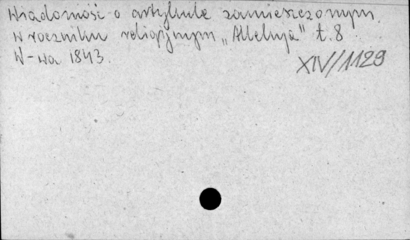 Wiadomość o artykule zamieszczonym
w roczniku religijnym "Alleluja" t. 8
W-wa 1843.
XIV/1129